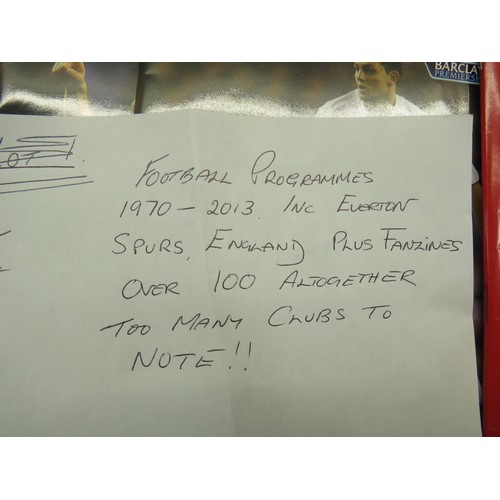 BARCLA
PREMIERSH
LOT 1.
FOOTBALL PROGRAMMES
1970 - 2013. INC EVERTON
SPURS, ENGLAND PLUS FANZINES
OVER 100 ALTOGETHER
TOO MANY CLUBS TO
NOTE!!